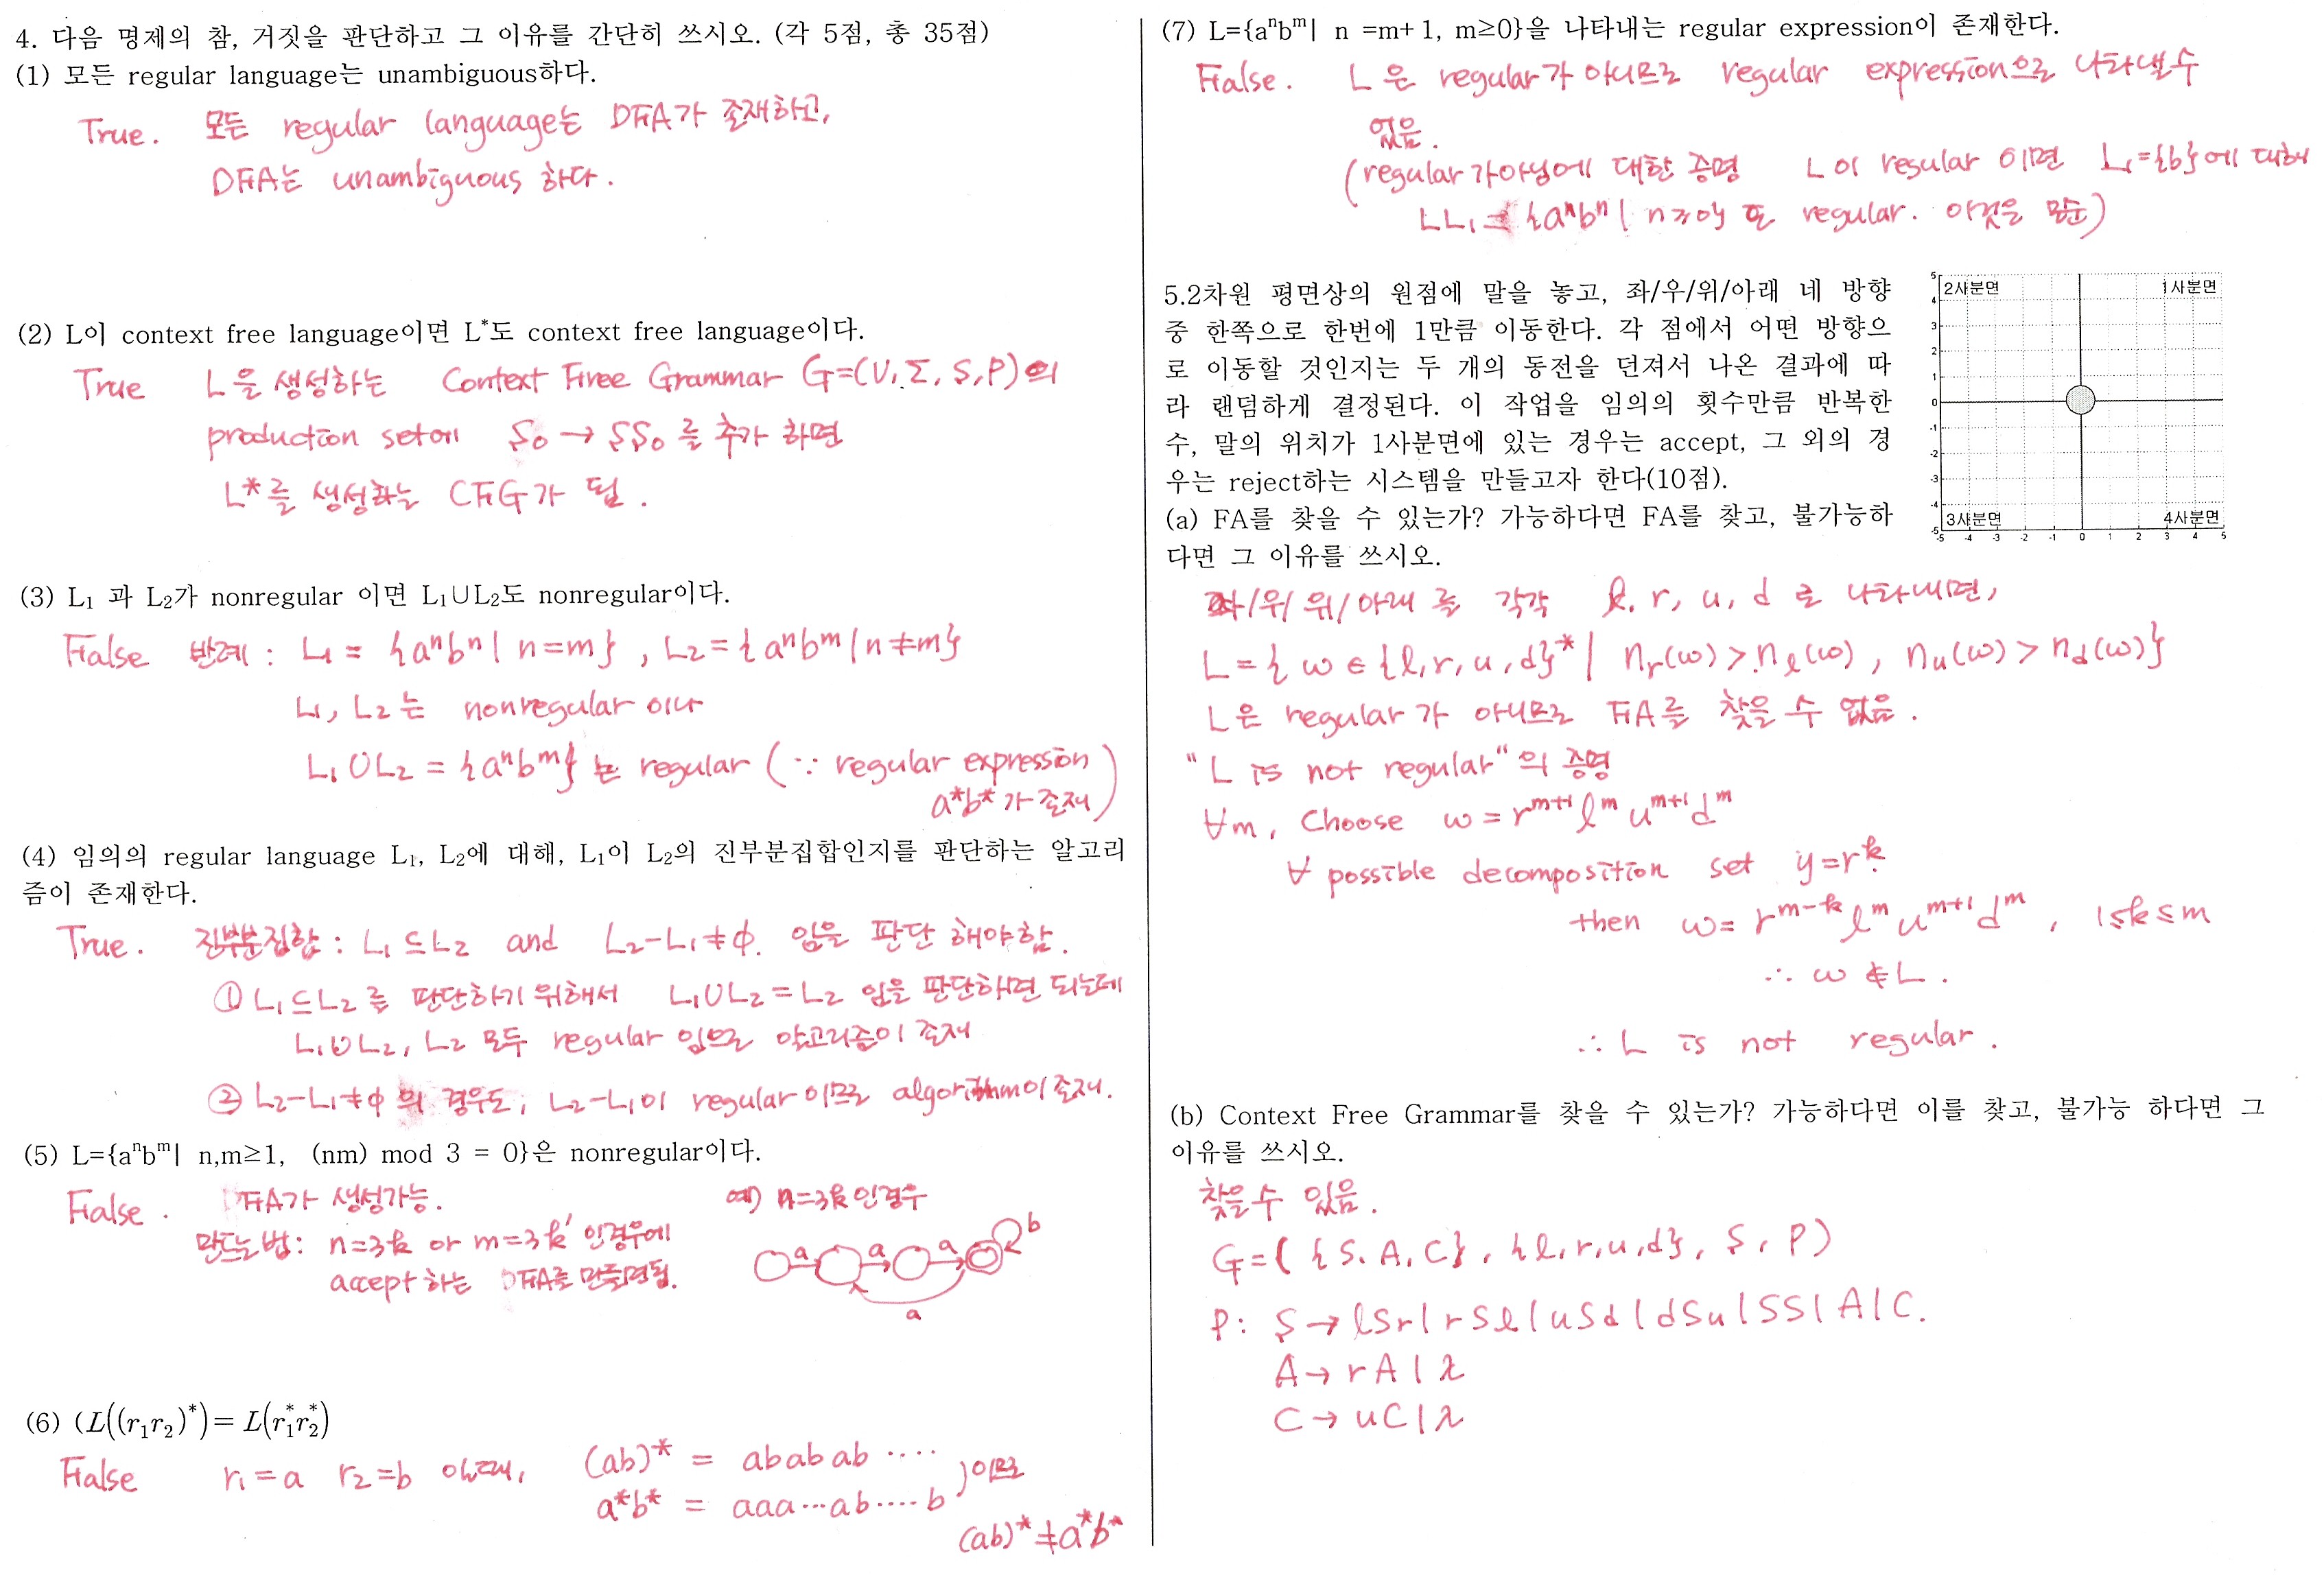 4. 다음 명제의 참, 거짓을 판단하고 그 이유를 간단히 쓰시오. (각 5점, 총 35점)
(1) 모든 regular language는 unambiguous하다.
True. 모든 regular language는 DFA가 존재하고,
DFA는 unambiguous 하다.
(2) L이 context free language이면 L*도 context free language이다.
True L을 생성하는 Context Free Grammar G=(V, Σ, S, P)의
production set에 S₀ → SS₀ 를 추가 하면
L*를 생성하는 CFG가 됨.
(3) L₁ 과 L₂가 nonregular 이면 L₁∪L₂도 nonregular이다.
False 반례 : L₁ = {aⁿbⁿ | n=m}, L₂ = {aⁿbᵐ | n≠m}
L₁, L₂는 nonregular 이나
L₁∪L₂ = {aⁿbᵐ} 는 regular (∵ regular expression
a*b* 가 존재)
(4) 임의의 regular language L₁, L₂에 대해, L₁이 L₂의 진부분집합인지를 판단하는 알고리
즘이 존재한다.
True. 진부분집합 : L₁ ⊆ L₂ and L₂-L₁ ≠ ϕ. 임을 판단 해야함.
① L₁ ⊆ L₂ 를 판단하기 위해서 L₁∪L₂ = L₂ 임을 판단하면 되는데
L₁∪L₂, L₂ 모두 regular 임으로 알고리즘이 존재
② L₂-L₁≠ϕ 의 경우도, L₂-L₁이 regular 이므로 algorithm이 존재.
(5) L={aⁿbᵐ| n,m≥1, (nm) mod 3 = 0}은 nonregular이다.
False. FA가 생성가능. 예) n=3k 인경우
만드는법: n=3k or m=3k' 인경우에
accept 하는 DFA를 만들면됨.
a a a b
a
(6) (L((r₁r₂)*)= L(r₁*r₂*)
False r₁=a r₂=b 일때, (ab)* = ababab ····
a*b* = aaa···ab····b )이므로
(ab)* ≠ a*b*
(7) L={aⁿbᵐ| n =m+1, m≥0}을 나타내는 regular expression이 존재한다.
False. L은 regular가 아니므로 regular expression으로 나타낼수
없음.
(regular가아님에 대한 증명 L이 regular 이면 L₁={b}에 대해
LL₁ = {aⁿbⁿ | n≥0} 도 regular. 이것은 모순)
5.2차원 평면상의 원점에 말을 놓고, 좌/우/위/아래 네 방향
중 한쪽으로 한번에 1만큼 이동한다. 각 점에서 어떤 방향으
로 이동할 것인지는 두 개의 동전을 던져서 나온 결과에 따
라 랜덤하게 결정된다. 이 작업을 임의의 횟수만큼 반복한
수, 말의 위치가 1사분면에 있는 경우는 accept, 그 외의 경
우는 reject하는 시스템을 만들고자 한다(10점).
2사분면 1사분면
3사분면 4사분면
5
4
3
2
1
0
-1
-2
-3
-4
-5
-5 -4 -3 -2 -1 0 1 2 3 4 5
(a) FA를 찾을 수 있는가? 가능하다면 FA를 찾고, 불가능하
다면 그 이유를 쓰시오.
좌/우/위/아래 를 각각 l, r, u, d 로 나타내면,
L = { w ∈ {l, r, u, d}* | nᵣ(w) > nₗ(w), nᵤ(w) > n_d(w)}
L은 regular 가 아니므로 FA를 찾을 수 없음.
"L is not regular"의 증명
∀m, Choose w = rᵐ⁺¹lᵐuᵐ⁺¹dᵐ
∀ possible decomposition set y=rᵏ.
then w= rᵐ⁻ᵏ lᵐ uᵐ⁺¹ dᵐ, 1≤k≤m
∴ w ∉ L.
∴ L is not regular.
(b) Context Free Grammar를 찾을 수 있는가? 가능하다면 이를 찾고, 불가능 하다면 그
이유를 쓰시오.
찾을수 있음.
G=( {S, A, C}, {l, r, u, d}, S, P)
P: S → lSr | rSl | uSd | dSu | SS | A | C.
A → rA | λ
C → uC | λ